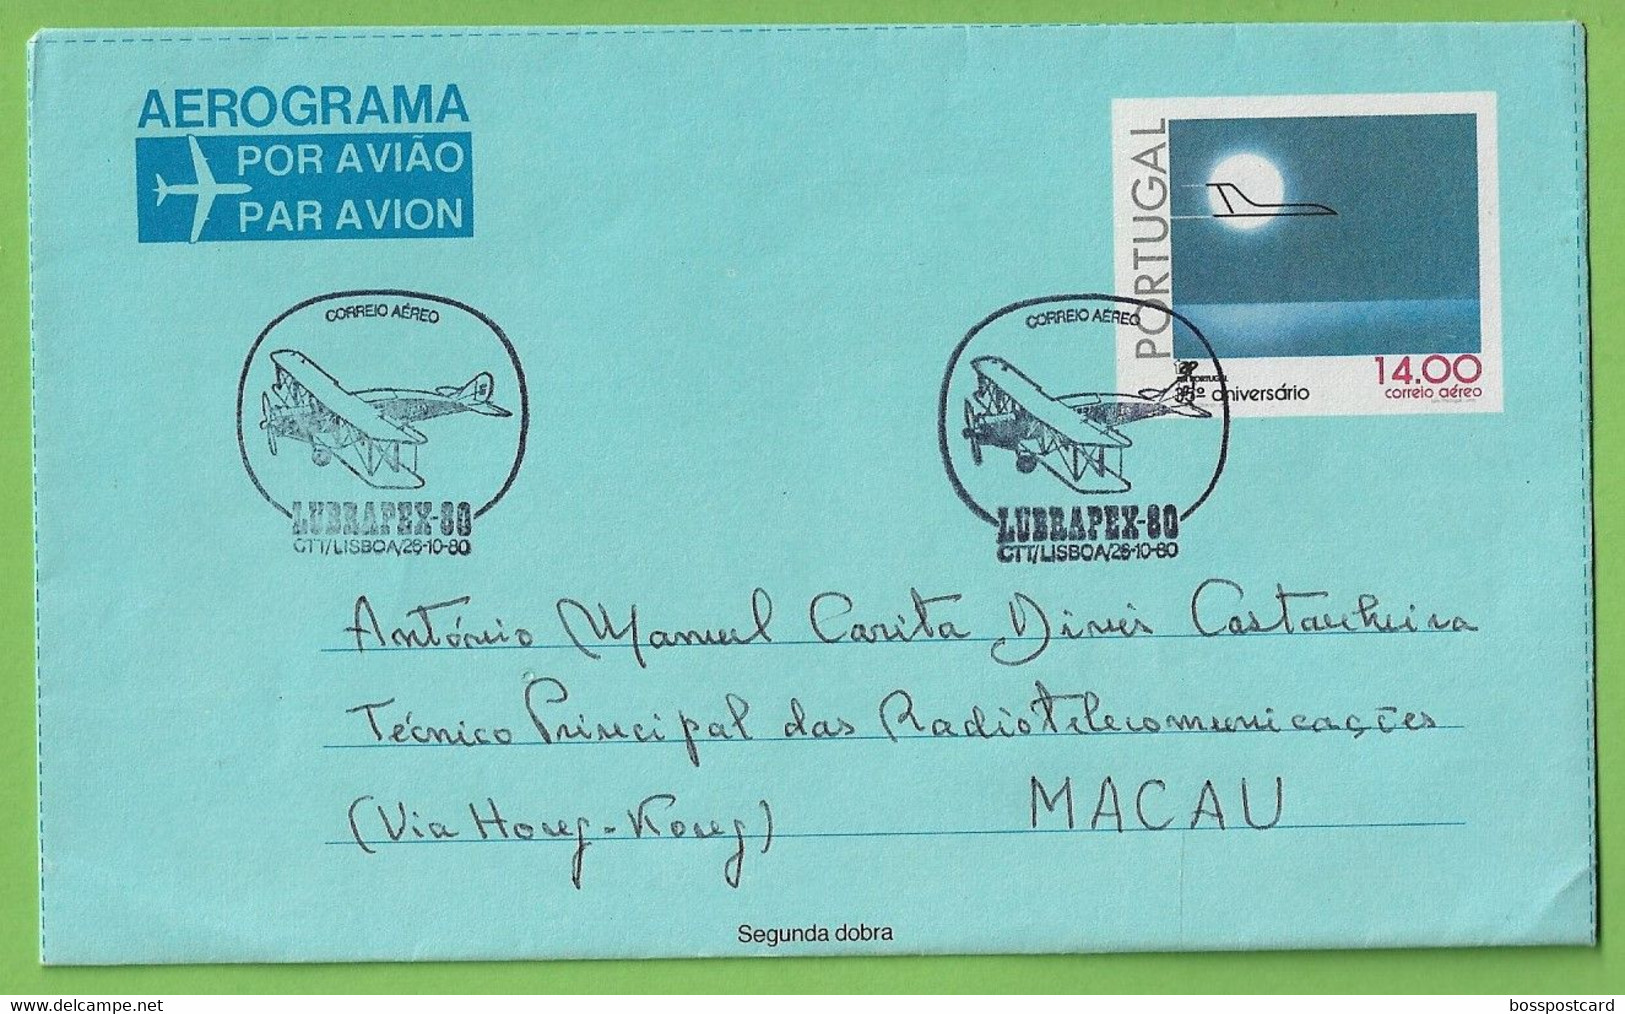 AEROGRAMA
POR AVIÃO
PAR AVION
PORTUGAL
TAP
AIR PORTUGAL
35º aniversário
14.00
correio aéreo
CORREIO AÉREO
LUBRAPEX-80
CTT/LISBOA/26-10-80
CORREIO AÉREO
LUBRAPEX-80
CTT/LISBOA/26-10-80
António Manuel Carita Dinis Castanheira
Técnico Principal das Radiotelecomunicações
(Via Hong-Kong) MACAU
Segunda dobra
www.delcampe.net
bosspostcard